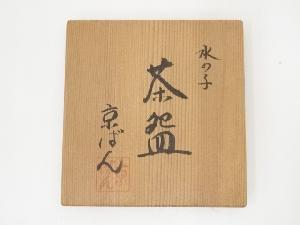 水の子
茶盌
京ばん